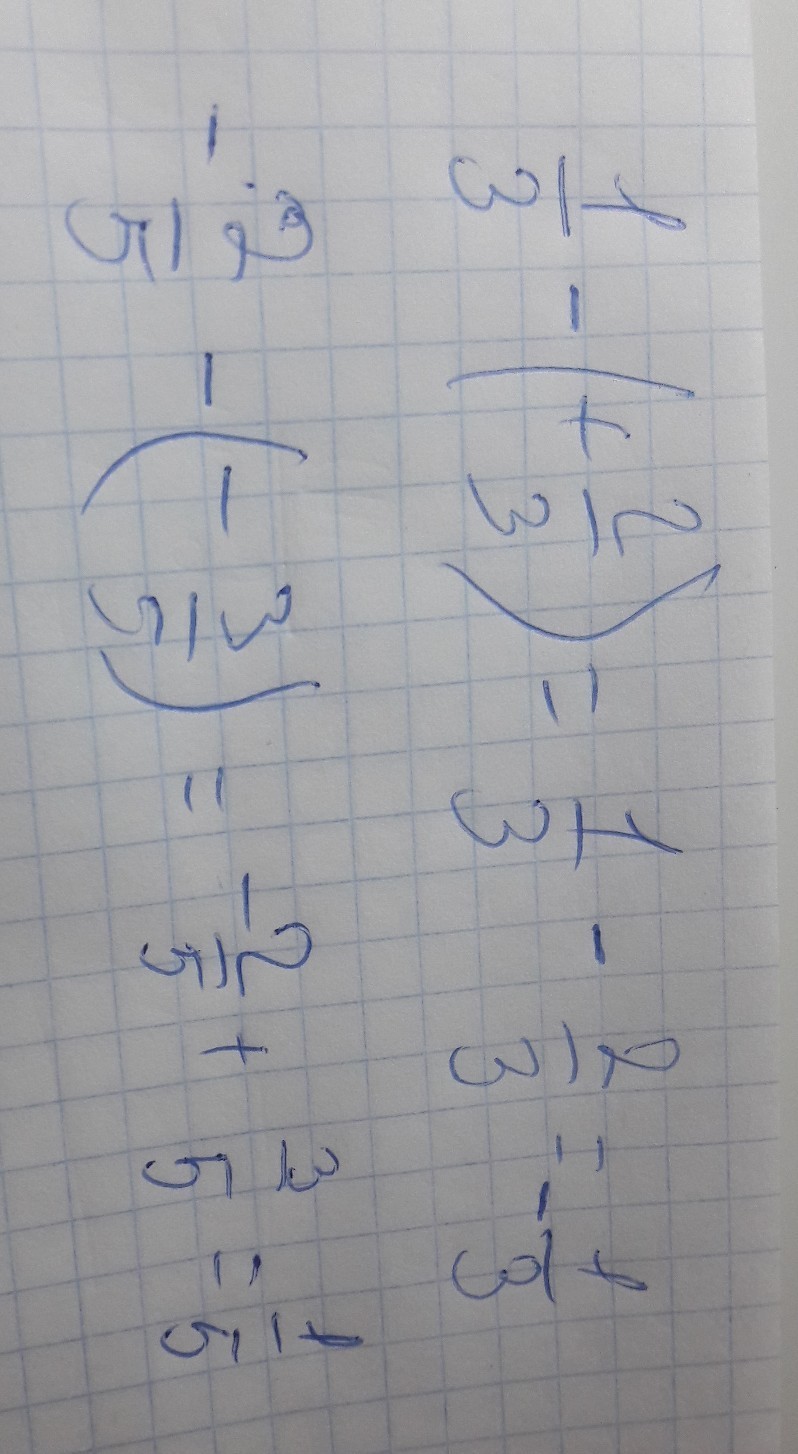 1/3 - (+ 2/3) = 1/3 - 2/3 = - 1/3
- 2/5 - (- 3/5) = - 2/5 + 3/5 = 1/5